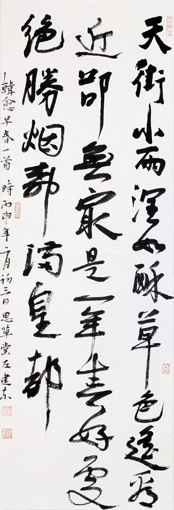 天街小雨润如酥草色遥看
近却無最是一年春好處
绝勝烟柳满皇都
韓愈早春一首 時丙申年二月初三日 思草堂左建东